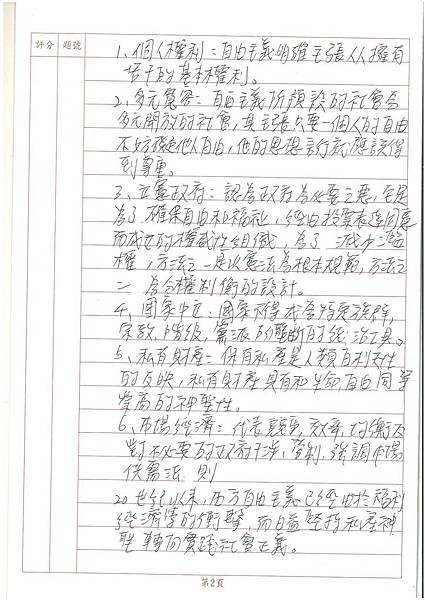 評分 題號
1、個人權利：自由主義明確主張人人擁有
若干的基本權利。
2、多元寬容：自由主義所預設的社會為
多元開放的社會，其主張只要一個人的自由
不妨礙他人自由，他的思想言行就應該得
到尊重。
3、立憲政府：認為政府為必要之惡，它是
為了確保自由和福祉，經由投票表達同意
而成立的權威性組織，為了減少濫
權，方法之一是以憲法為根本規範，方法之
二為分權制衡的設計。
4、國家中立：國家不得成為特定族群,
宗教,階級,黨派的壟斷的統治工具。
5、私有財產：保有私產是人類自利天性
的反映，私有財產具有和生命自由同等
崇高的神聖性。
6、市場經濟：代表競爭,效率,均衡反
對不必要的政府干涉,管制,強調市場
供需法則
20世紀以來,西方自由主義已經由於福利
經濟學的衝擊，而自
私產神
聖轉向實踐社會正義。
第2頁